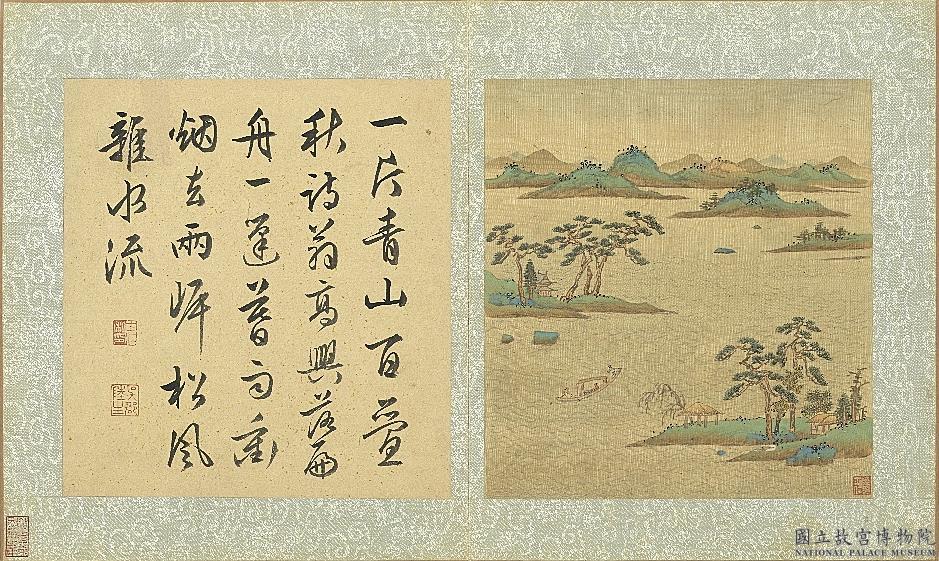 一片青山百疊
秋詩翁高興落扁
舟一篷暮雨衝
烟去兩岸松風
雜水流
國立故宮博物院
NATIONAL PALACE MUSEUM